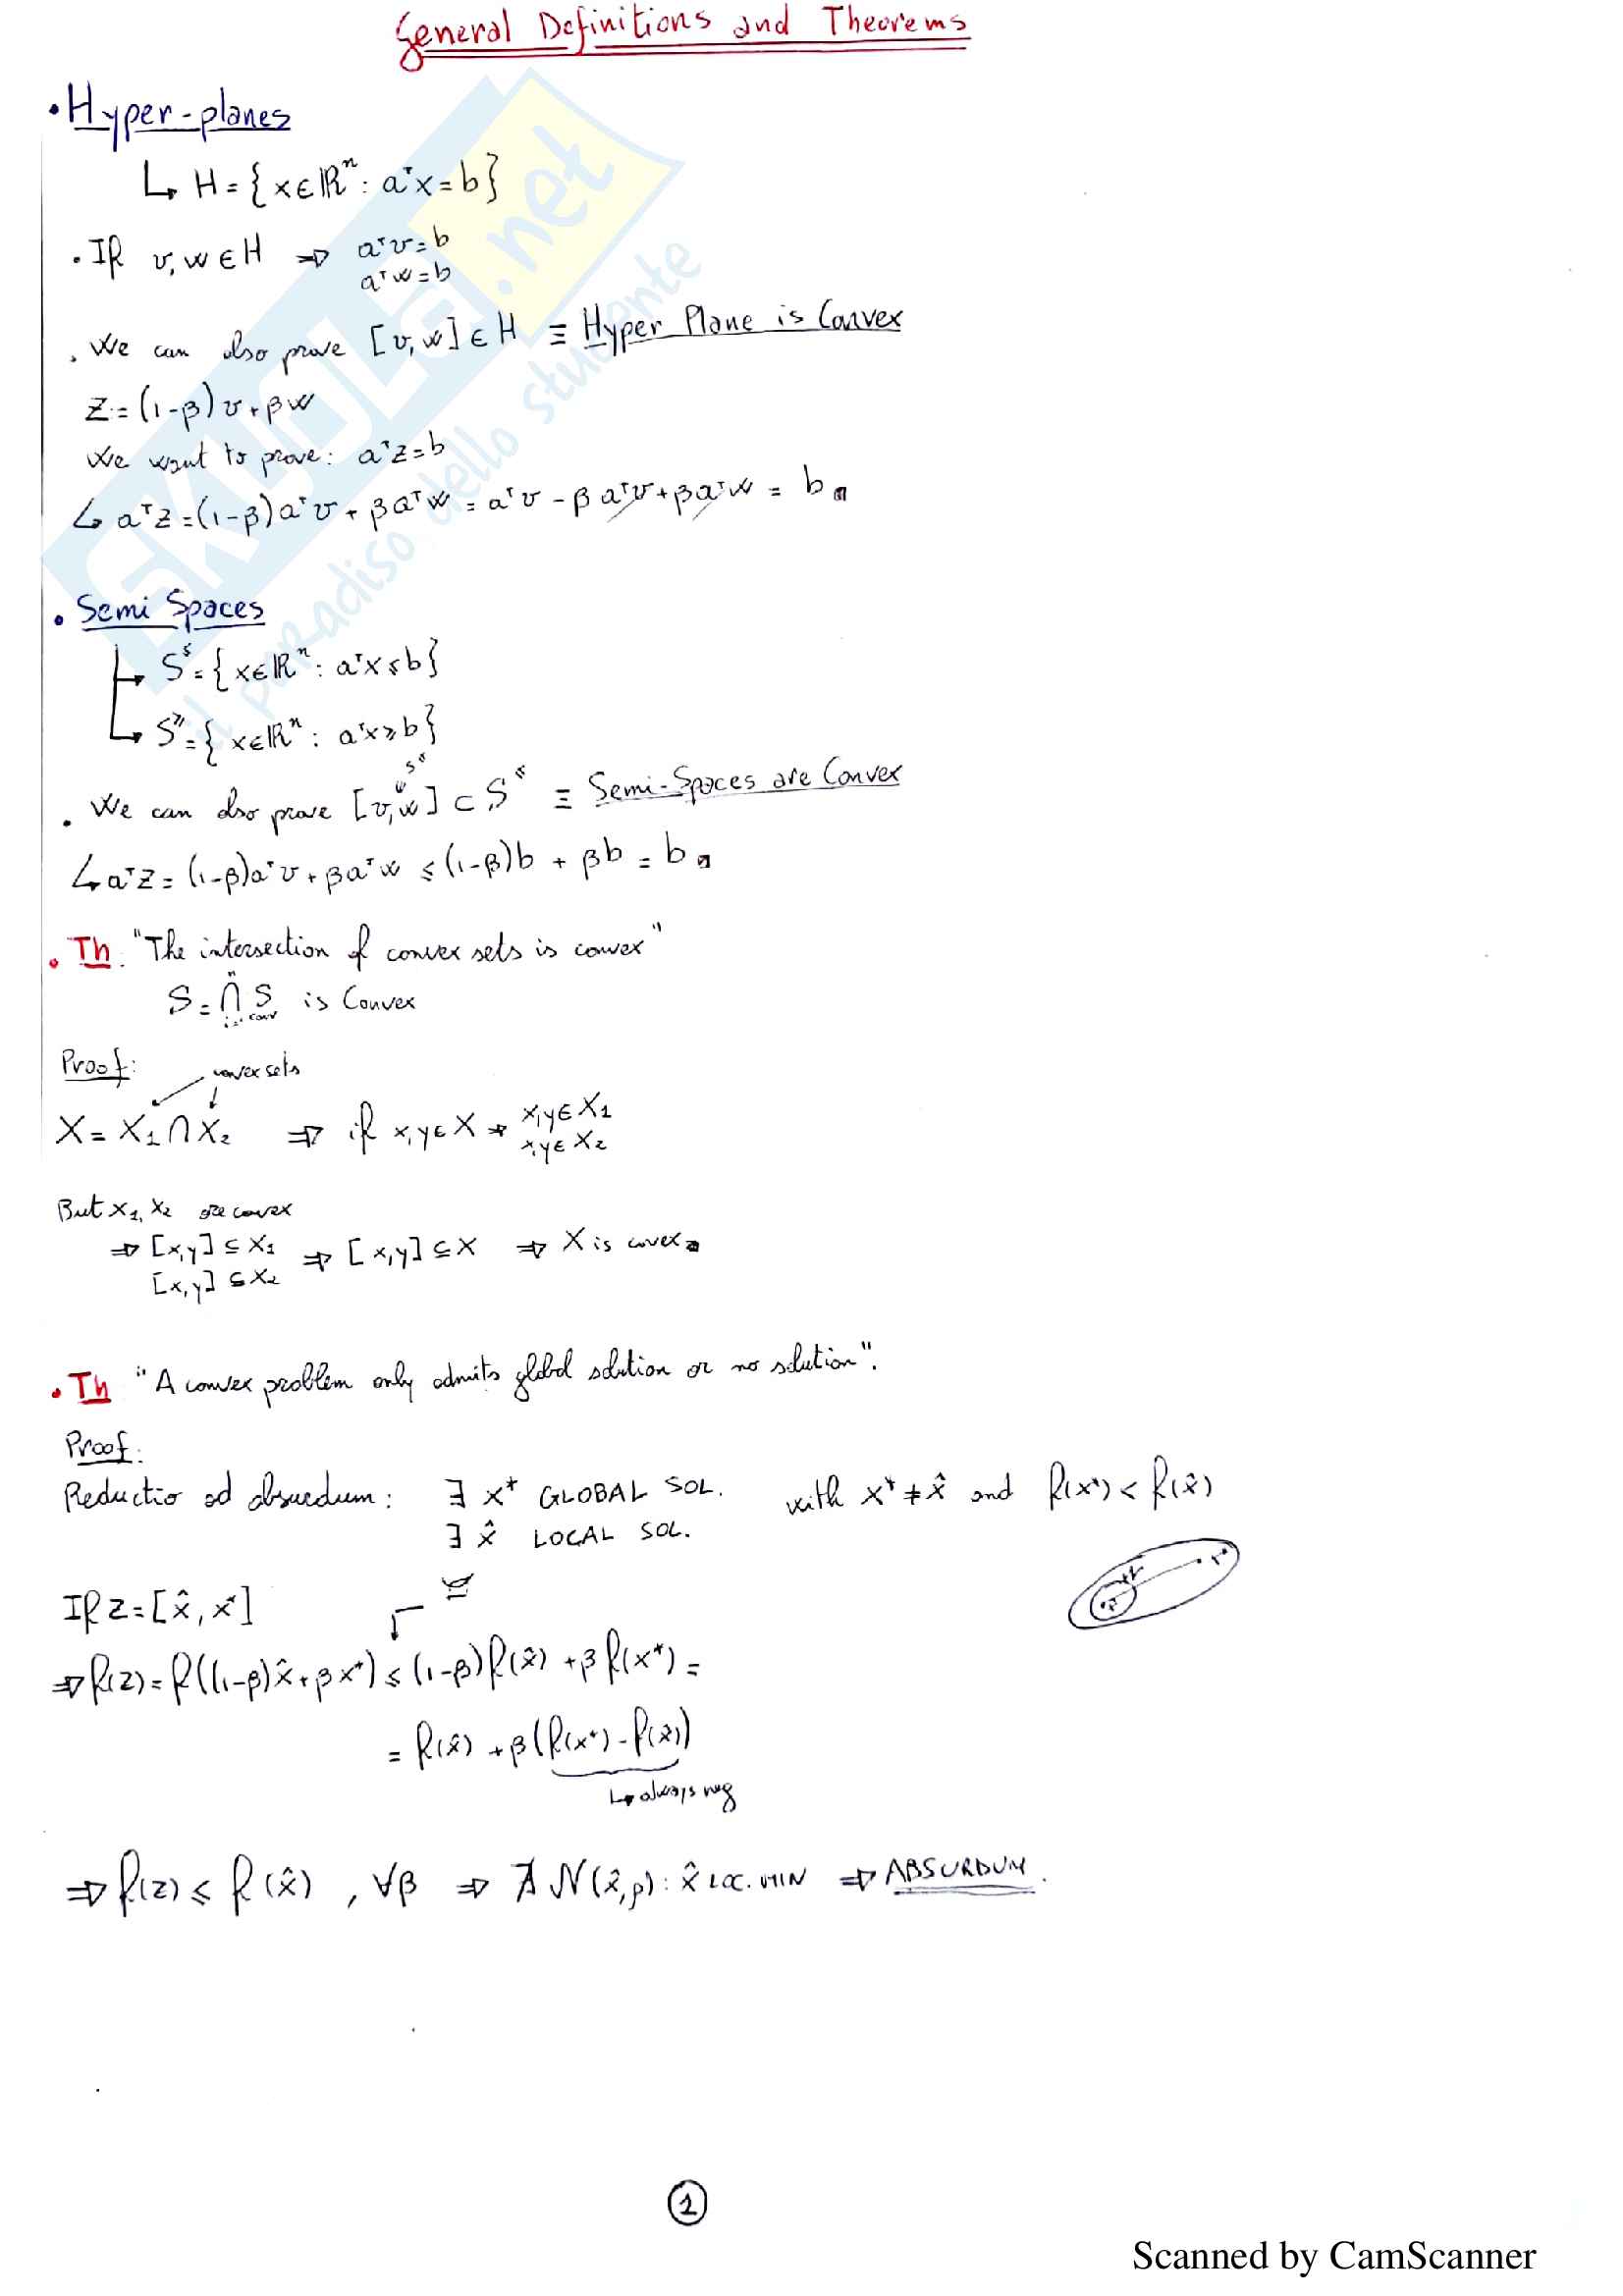 General Definitions and Theorems
• Hyper-planes
↳ H = { x ∈ ℝⁿ : aᵀx = b }
• If v, w ∈ H ⇒ aᵀv = b
aᵀw = b
• We can also prove [v, w] ∈ H ≡ Hyper Plane is Convex
z = (1-β) v + β w
We want to prove: aᵀz = b
↳ aᵀz = (1-β) aᵀv + β aᵀw = aᵀv - β aᵀv + β aᵀw = b
• Semi Spaces
↳ S^≤ = { x ∈ ℝⁿ : aᵀx ≤ b }
↳ S^≥ = { x ∈ ℝⁿ : aᵀx ≥ b }
• We can also prove [v, w] ⊂ S^≤ ≡ Semi-Spaces are Convex
↳ aᵀz = (1-β) aᵀv + β aᵀw ≤ (1-β) b + β b = b
• Th: "The intersection of convex sets is convex"
S = ⋂ S is Convex
Proof:
convex sets
X = X₁ ∩ X₂ ⇒ if x, y ∈ X → x, y ∈ X₁
x, y ∈ X₂
But X₁, X₂ are covex
⇒ [x, y] ⊆ X₁ ⇒ [x, y] ⊆ X ⇒ X is covex
[x, y] ⊆ X₂
• Th "A convex problem only admits global solution or no solution".
Proof:
Reductio ad absurdum: ∃ x* GLOBAL SOL. with x* ≠ x̂ and f(x*) < f(x̂)
∃ x̂ LOCAL SOL.
If z = [x̂, x*]
⇒ f(z) = f((1-β) x̂ + β x*) ≤ (1-β) f(x̂) + β f(x*) =
= f(x̂) + β (f(x*) - f(x̂))
↳ always neg
⇒ f(z) ≤ f(x̂), ∀β ⇒ ∄ N(x̂, ρ) : x̂ LOC. MIN ⇒ ABSURDUM.
1
Scanned by CamScanner
SKUOLa.net
il paradiso dello studente